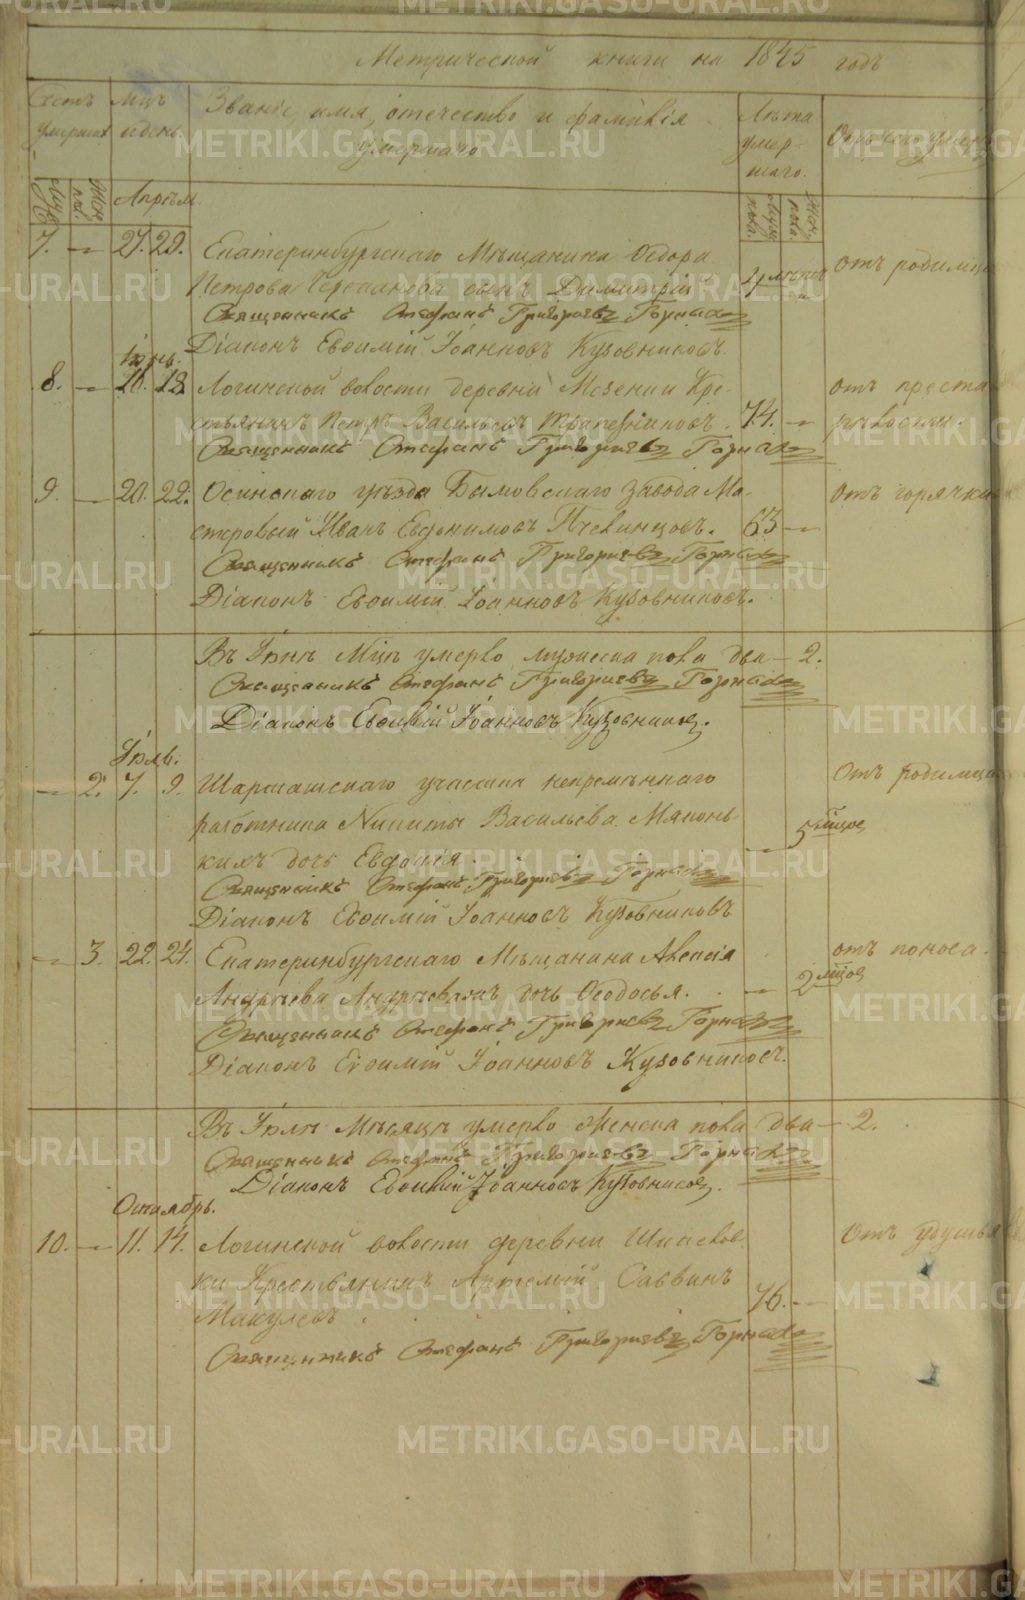 Метрической книги на 1845 годъ
Счетъ умершихъ
Мцъ и день.
Званіе, имя, отечество и фамилія умершаго
Лѣта умершаго.
Отъ чего умеръ
Муж. пола
Жен. пол.
Апрѣль.
Муж. пола.
Жен. пола.
7. — 27. 29. Екатеринбургскаго Мѣщанина Ѳедора
Петрова Черепанова сынъ Димитрій
отъ родимца
Священникъ Стефанъ Григорьевъ Горныхъ
Діаконъ Евѳимій Іоанновъ Кузовниковъ.
Іюнь.
8. — 18. Логинской волости деревни Мезенки Кре-
стьянинъ Петръ Васильевъ 74. —
отъ преста
рѣлости.
Священникъ Стефанъ Григорьевъ Горныхъ
9. — 20. 22. Осинскаго уѣзда Бымовскаго завода Ма-
стеровый Иванъ Евдокимовъ 63 —
отъ горячки
Священникъ Стефанъ Григорьевъ Горныхъ
Діаконъ Евѳимій Іоанновъ Кузовниковъ.
Въ Іюнѣ Мцѣ умерло мужеска пола два — 2.
Священникъ Стефанъ Григорьевъ Горныхъ
Діаконъ Евѳимій Іоанновъ Кузовниковъ.
Іюль.
— 2. 7. 9. Шарташскаго участка непремѣннаго
Отъ родимца
работника Никиты Васильева Мяконь-
кихъ дочь Евдокія. — 5 мцов
Священникъ Стефанъ Григорьевъ Горныхъ
Діаконъ Евѳимій Іоанновъ Кузовниковъ
— 3. 22. 24. Екатеринбургскаго Мѣщанина Алексія
отъ поноса.
Андреева дочь Ѳеодосья. — 2 мцов
Священникъ Стефанъ Григорьевъ Горныхъ
Діаконъ Евѳимій Іоанновъ Кузовниковъ.
Въ Іюлѣ Мѣсяцѣ умерло Женска пола два — 2.
Священникъ Стефанъ Григорьевъ Горныхъ
Діаконъ Евѳимій Іоанновъ Кузовниковъ.
Октябрь.
10. — 11. 14. Логинской волости деревни
Отъ удушья
ки Крестьянинъ Артемій Саввинъ
Макулевъ. 76. —
Священникъ Стефанъ Григорьевъ Горныхъ
METRIKI.GASO-URAL.RU